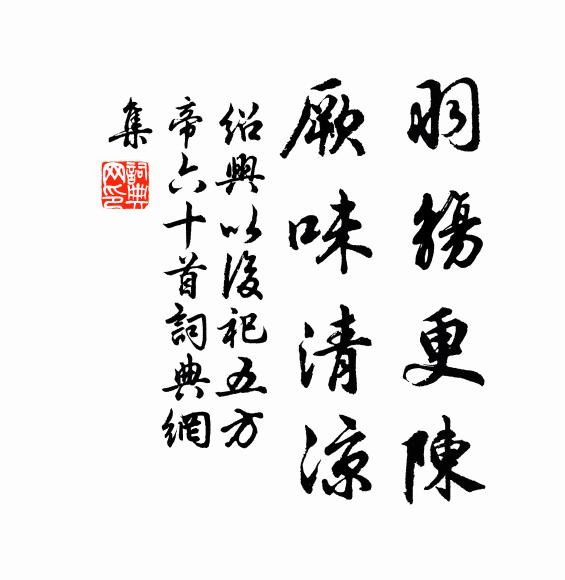 羽觴更陳
厥味清涼
紹興以後祀五方
帝六十首詞典網
集
詞典網印